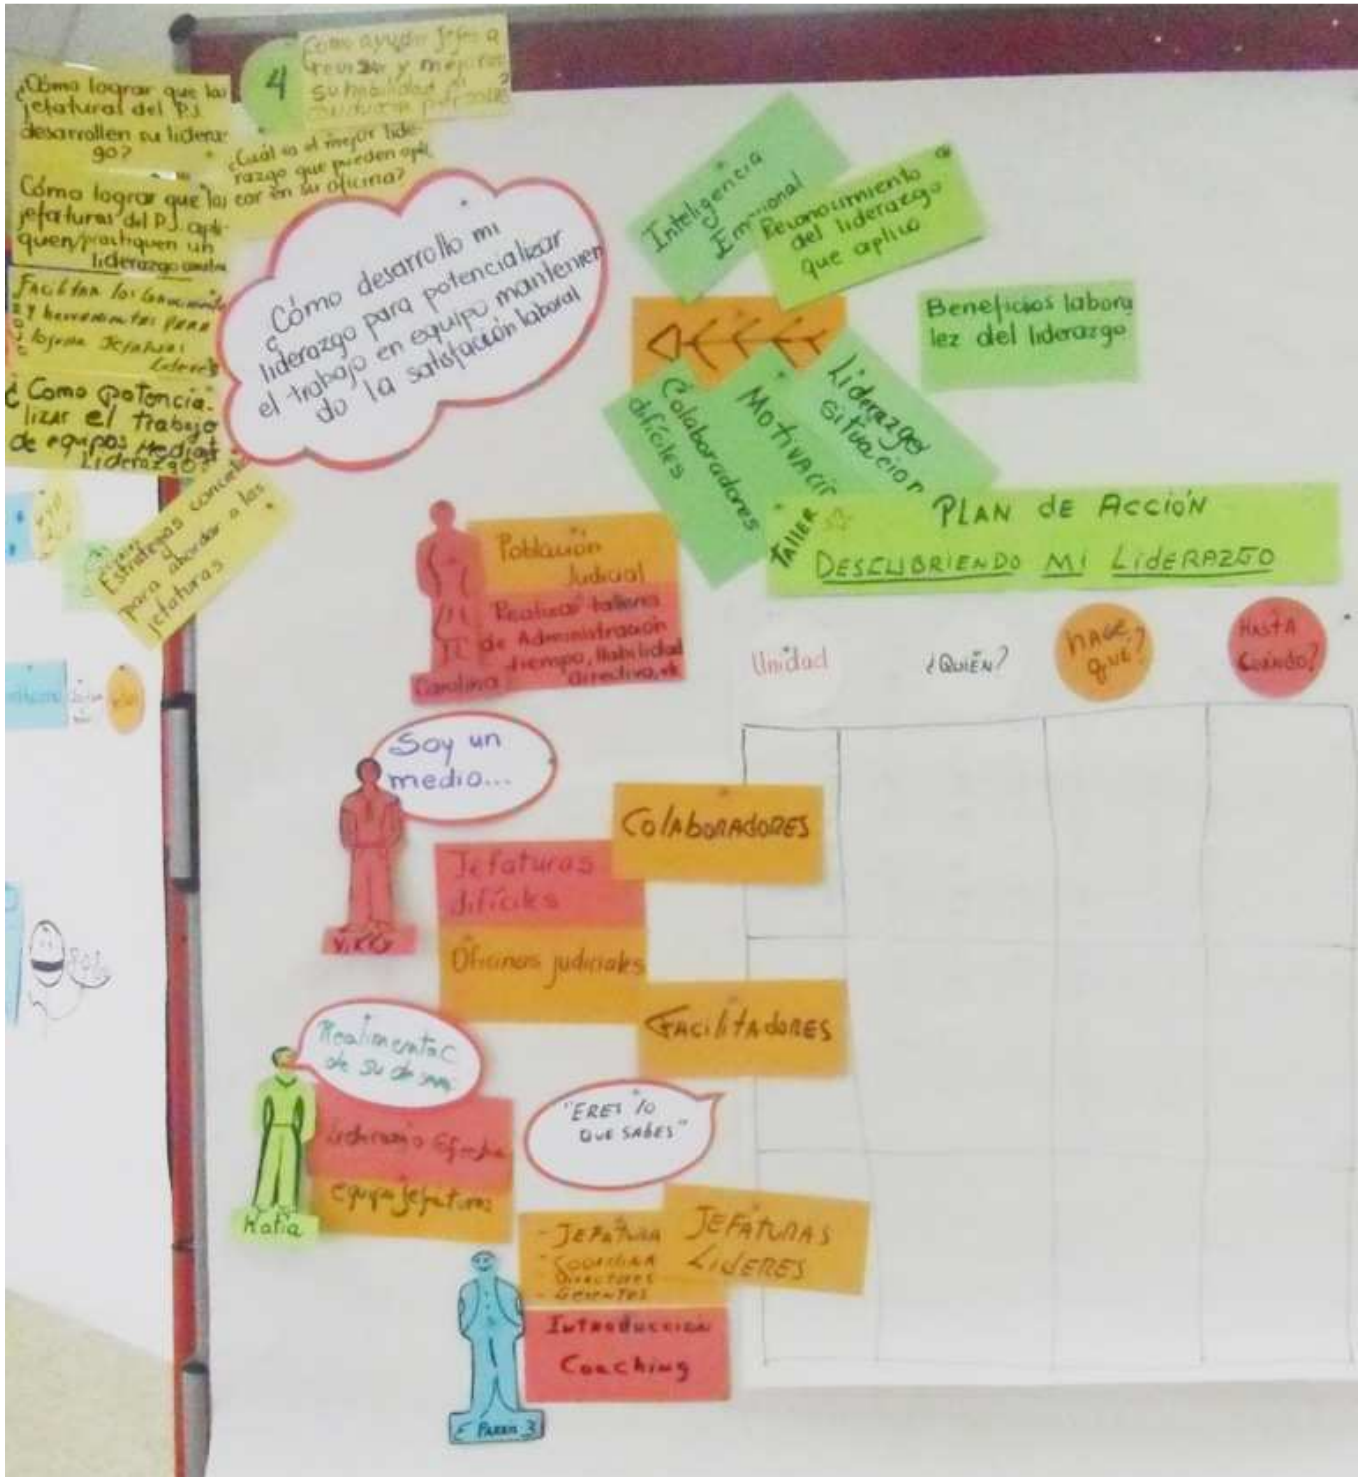 4
Como ayudar jefes a
revisar y mejorar
su habilidad de
¿Cómo lograr que las
jefaturas del P.J.
desarrollen su lideraz-
go?
¿Cuál es el mejor lide-
razgo que pueden apli-
car en su oficina?
Cómo lograr que las
jefaturas del P.J. apli-
quen/practiquen un
liderazgo
Facilitar los
y herramientas para
lograr Jefaturas
Lideres
¿Como potencia-
lizar el trabajo
de equipos mediant
Liderazgo?
Estrategias concretas
para abordar a las
jefaturas
¿Cómo desarrollo mi
liderazgo para potencializar
el trabajo en equipo mantenien
do la satisfacción laboral
Inteligencia
Emocional
Reconocimiento
del liderazgo
que aplico
Beneficios labora
lez del liderazgo
Colaboradores
difíciles
Motivación
Liderazgo
situacion
TALLER
PLAN de ACCIÓN
DESCUBRIENDO MI LIDERAZGO
Unidad
¿QUIÉN?
HACE
QUÉ?
HASTA
CUÁNDO?
Población
Judicial
Realizar talleres
de Administración
tiempo, Habilidad
directiva, etc
Carolina
Soy un
medio...
Vicky
COLABORADORES
Jefaturas
difíciles
Oficinas judiciales
FACILITADORES
Realimentac
de su
Katia
Liderazgo
equipo jefaturas
"ERES lo
QUE SABES"
- JEFATURA
- COORDINA
- DIRECTORES
- GERENTES
JEFATURAS
LIDERES
Introducción
Coaching